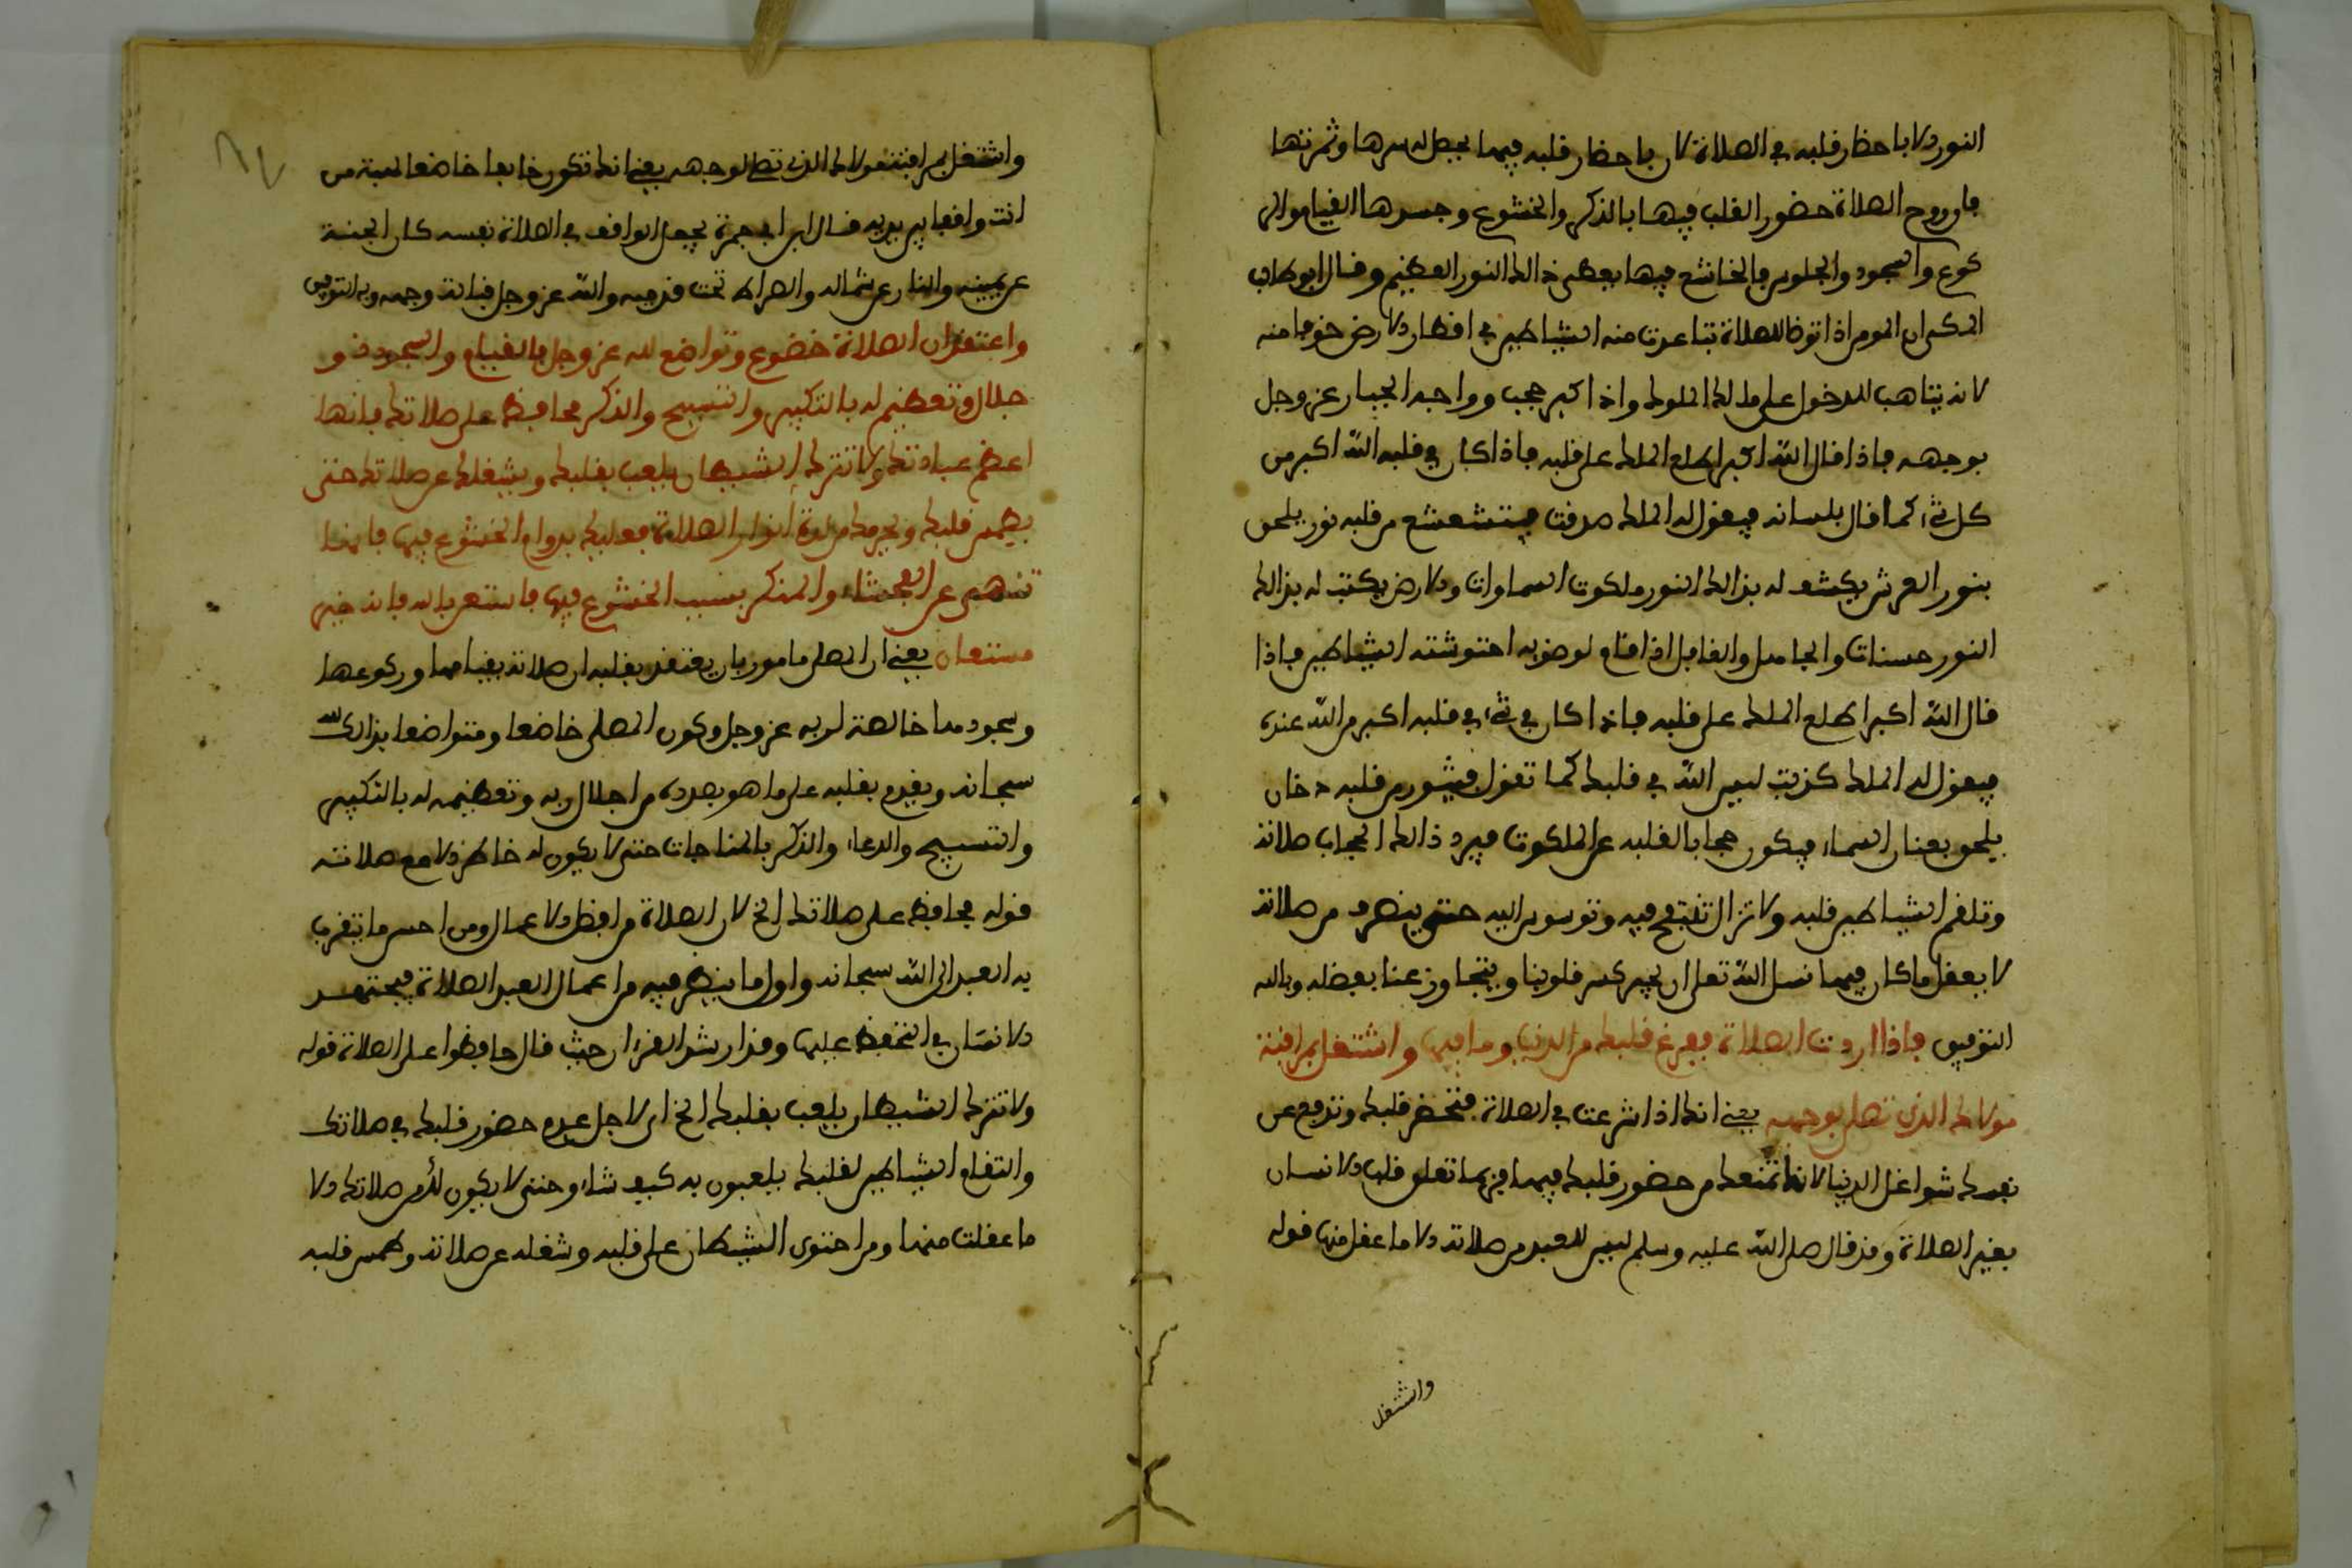 النور الا باحظار قلبه في الصلاة لان باحظار قلبه فيها يحصل له سرها وثمرتها
فان روح الصلاة حضور القلب فيها بالذكر والخشوع وجسدها القيام والر
كوع والسجود والجلوس فالخاشع فيها يعطى ذالك النور العظيم وقال ابو طالب
المكي ان المومن اذا توظا للصلاة تباعدت منه الشياطين في اقطار الارض خوفا منه
لانه يتاهب للدخول على ملك الملوك واذا كبر حجب وواجه الجبار عز وجل
بوجهه فاذا قال الله اكبر اطلع الملك على قلبه فاذا كان في قلبه الله اكبر من
كل شيء كما قال بلسانه فيقول له الملك صدقت فيتشعشع من قلبه نور يلحق
بنور العرش يكشف له بذالك النور ملكوت السماوات والارض يكتب له بذالك
النور حسنات والجاهل والغافل اذا قام لوضوه احتوشته الشياطين فاذا
قال الله اكبر اطلع الملك على قلبه فاذا كان في شيء في قلبه اكبر من الله عنده
فيقول له الملك كذبت ليس الله في قلبك كما تقول فيثور من قلبه دخان
يلحق بعنان السماء فيكون حجابا لقلبه عن الملكوت فيرد ذالك الحجاب صلاته
وتلقم الشياطين قلبه ولا تزال تنفخ فيه وتوسوس اليه حتى ينصرف من صلاته
لا يعقل ما كان فيها نسل الله تعلى ان يجبر كسر قلوبنا ويتجاوز عنا بفضله وبالله
التوفيق فاذا اردت الصلاة ففرغ قلبك من الدنيا وما فيها واشتغل بمراقبة
مولاك الذي تصلي لوجهه يعني انك اذا شرعت في الصلاة فتحضر قلبك وتدفع عن
نفسك شواغل الدنيا لانها تمنعك من حضور قلبك فيها فربما تعلق قلب الانسان
بغير الصلاة وقد قال صلى الله عليه وسلم ليس للعبد من صلاته الا ما عقل منها قوله
واشتغل
واشتغل بمراقبة مولاك الذي تصلي لوجهه يعني انك تكون خايفا خاضعا لهيبة من
انت واقف بين يديه قال ابن ابي جمرة يجعل الواقف في الصلاة نفسه كان الجنة
عن يمينه والنار عن شماله والصراط تحت قدميه والله عز وجل قبالة وجهه وبه التوفيق
واعتقد ان الصلاة خضوع وتواضع لله عز وجل بالقيام والسجود
جلال وتعظيم له بالتكبير والتسبيح والذكر محافظ على صلاتك فانها
اعظم عباداتك ولا تترك الشيطان يلعب بقلبك ويشغلك عن صلاتك حتى
يطمس قلبك ويحرمك من لذة انوار الصلاة فعليك بدوام الخشوع فيها فانها
تنهى عن الفحشاء والمنكر بسبب الخشوع فيها فاستعن بالله فانه خير
مستعان يعني ان المصلي مامور بان يعتقد بقلبه ان صلاته بقيامها وركوعها
وسجودها خالصة لربه عز وجل وكون المصلي خاضعا ومتواضعا بذالك لله
سبحانه ويقدم بقلبه على ما هو بصدده من اجلال ربه وتعظيمه له بالتكبير
والتسبيح والدعاء والذكر بالمناجات حتى لا يكون له خاطر الا مع صلاته
قوله محافظ على صلاتك الخ لان الصلاة من افظل الاعمال ومن احسن ما يتقرب
به العبد الى الله سبحانه واول ما ينظر فيه من اعمال العبد الصلاة فيجتهد
الانسان في التحفظ عليها وقد ارشد القرءان حيث قال حافظوا على الصلاة قوله
ولا تترك الشيطان يلعب بقلبك الخ اي لاجل عدم حضور قلبك في صلاتك
والتقام الشياطين لقلبك يلعبون به كيف شاء وحتى لا يكون لك من صلاتك الا
ما عقلت منها ومن احتوى الشيطان على قلبه وشغله عن صلاته وطمس قلبه